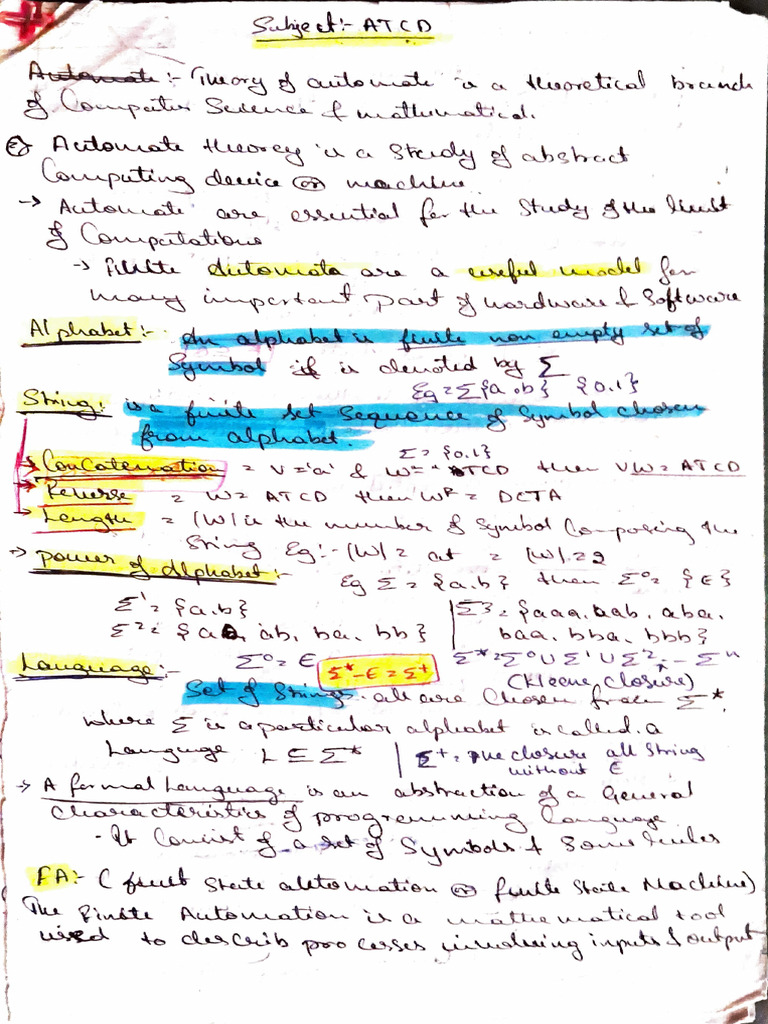 Subject:- ATCD
Automate:- Theory of automate is a theoretical branch
of Computer Science & mathematical.
Automate theorey is a Study of abstract
Computing device or machine.
→ Automate are essential for the Study of the limit
of Computations
→ finite automata are a useful model for
many important part of hardware & Software
Alphabet:- An alphabet is finite non empty set of
Symbol if is denoted by Σ
Eg = Σ{a,b} {0,1}
String: is a finite set Sequence of Symbol chosen
from alphabet.
Σ = {0,1}
→ Concatenation = V = 'a' & W = TCD then VW = ATCD
→ Reverse = W = ATCD then Wᴿ = DCTA
→ Length = |W| is the number of Symbol Composing the
String Eg:- |W| = at = |W| = 2
→ power of alphabet:- Eg Σ = {a,b} then Σ⁰ = {ϵ}
Σ¹ = {a,b}
Σ² = {aa, ab, ba, bb}
Σ³ = {aaa, aab, aba,
baa, bba, bbb}
Language:- Σ⁰ = ϵ Σ* - ϵ = Σ⁺ Σ* = Σ⁰ ∪ Σ¹ ∪ Σ² -- Σⁿ
(Kleene closure)
Set of Strings all are Chosen from Σ*,
where Σ is a particular alphabet is called a
Language L ⊆ Σ*
Σ⁺ = +ve closure all String
without ϵ
→ A formal Language is an abstraction of a General
Characteristics of programming Language
- It Consist of a set of Symbols & Some rules
FA:- (finit State automation or finite State Machine)
The Finite Automation is a mathematical tool
used to describ processes involving inputs & output